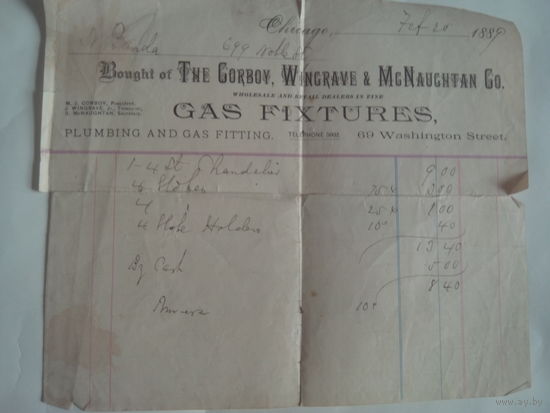 Chicago, Feb 20 1889
699 Noble St
Bought of THE CORBOY, WINGRAVE & MCNAUGHTAN CO.
WHOLESALE AND RETAIL DEALERS IN FINE
M. J. CORBOY, President.
J. WINGRAVE, Jr., Treasurer.
D. McNAUGHTAN, Secretary.
GAS FIXTURES,
PLUMBING AND GAS FITTING. TELEPHONE 69 Washington Street.
1-4 Lt Chandelier 9 00
4 75 3 00
4 " 25 1 00
4 Globe Holders 10 40
13 40
By Cash 5 00
8 40
www.ay.by